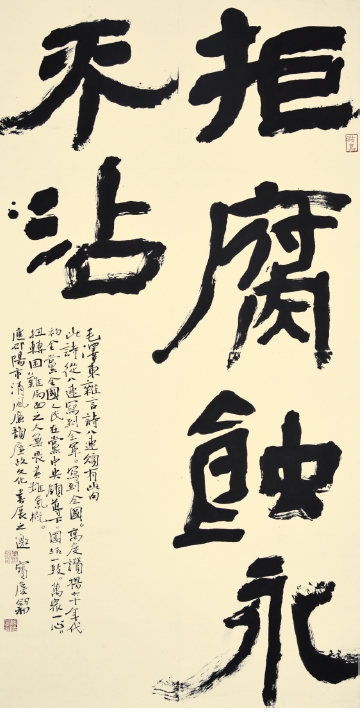 拒腐蚀永
不沾
毛泽东杂言诗八连颂有此句
此诗从八连写到全军。写到全国。高度讚扬六十年代
初全党全国人民在党中央领导下。团结一致。万众一心。
扭转困难局面之人无畏英雄气概。
应邵阳市清风廉韵廉政文化书展之邀